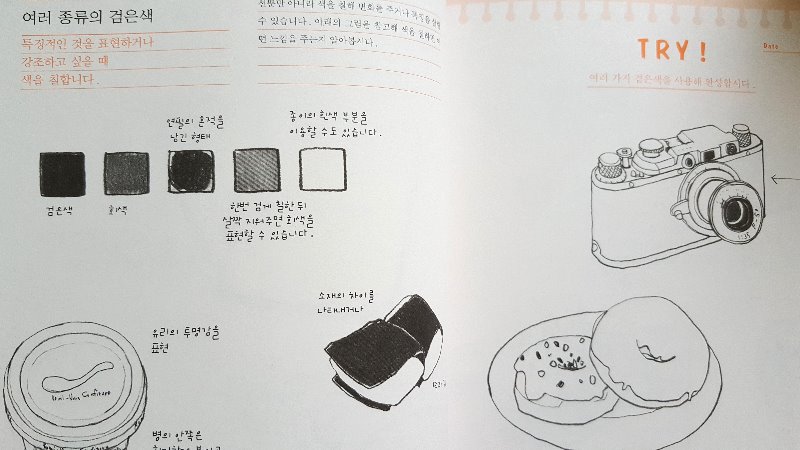 여러 종류의 검은색
특징적인 것을 표현하거나
강조하고 싶을 때
색을 칠합니다.
수 있습니다. 아래의 그림을 참고해 색을
면 느낌을 주는지 알아봅시다.
연필의 흔적을
남긴 형태
종이의 흰색 부분을
이용할 수도 있습니다.
검은색
회색
한번 검게 칠한 뒤
살짝 지워주면 회색을
표현할 수 있습니다.
소재의 차이를
나타내거나
유리의 투명감을
표현
병의 안쪽은
TRY!
Date
여러 가지 검은색을 사용해 완성합시다.